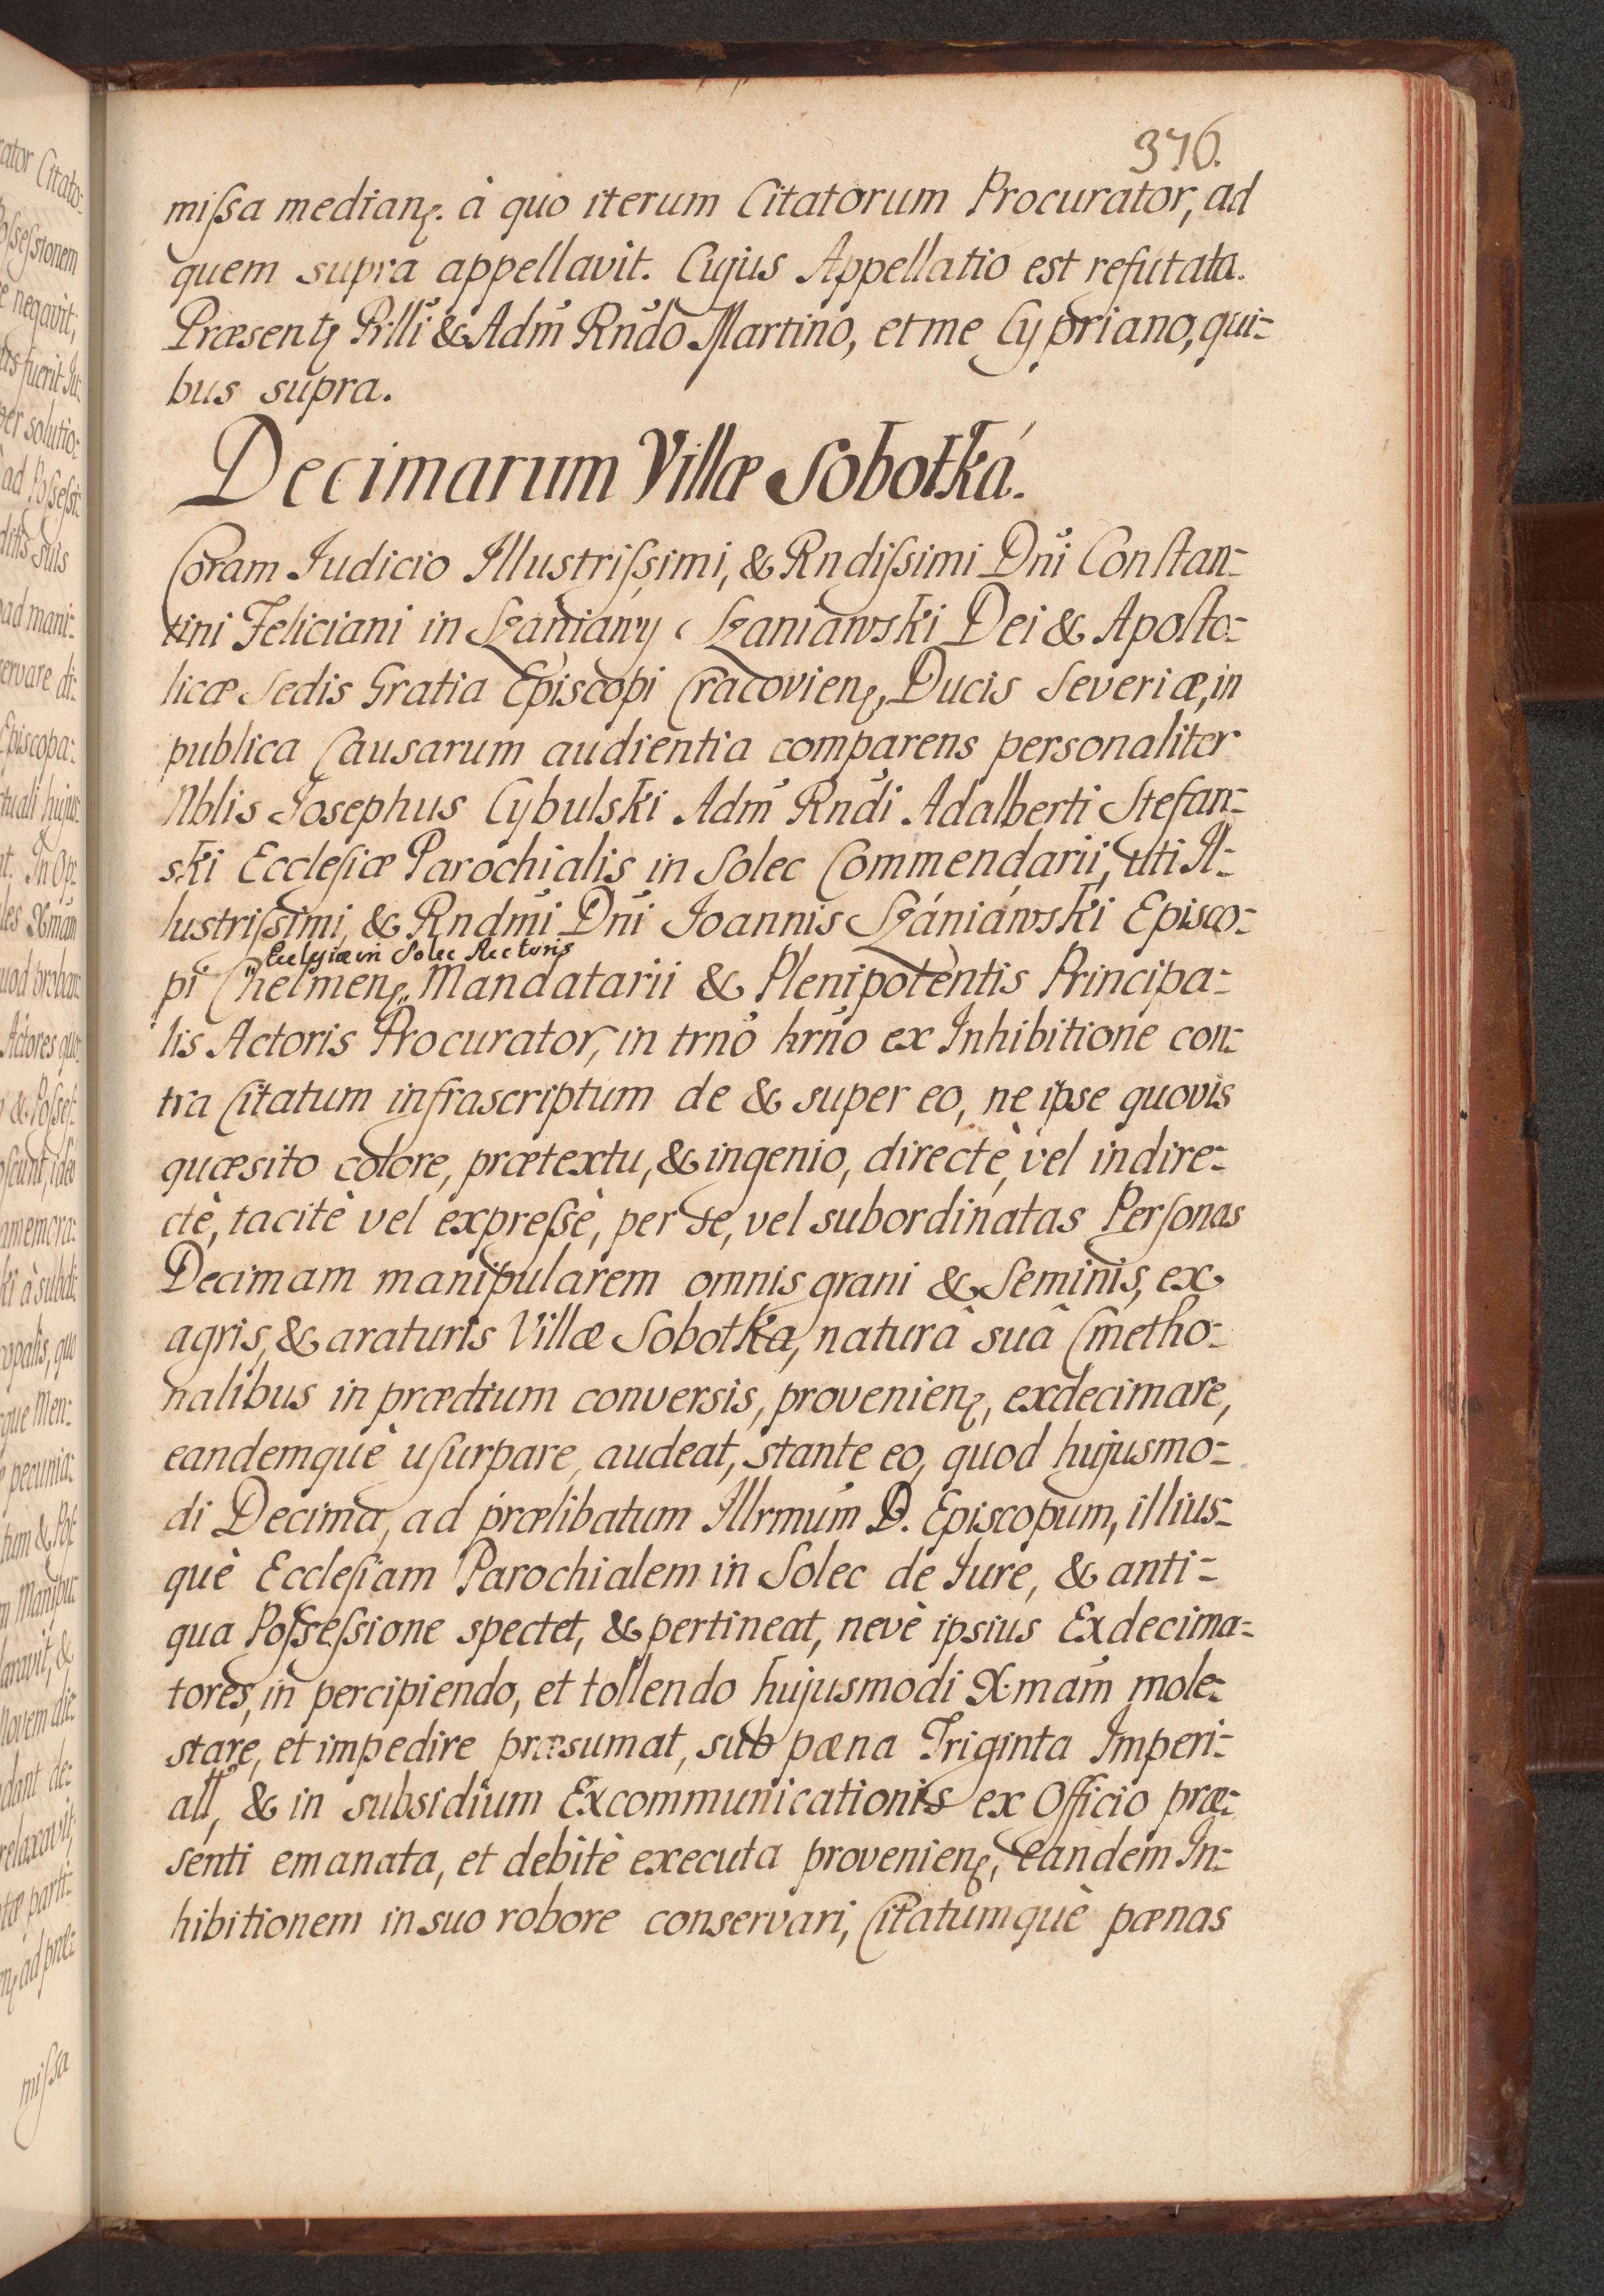 376.
missa median. à quo iterum Citatorum Procurator, ad
quem supra appellavit. Cujus Appellatio est refutata.
Præsent Prlli & Adm Rndo Martino, et me Cypriano, qui-
bus supra.
Decimarum Villæ Sobotka.
Coram Judicio Illustrissimi, & Rndissimi Dni Constan-
tini Feliciani in Szaniawy Szaniawski Dei & Aposto-
licæ Sedis Gratia Episcopi Cracovien, Ducis Severiæ, in
publica Causarum audientia comparens personaliter
Nblis Josephus Cybulski Adm Rndi Adalberti Stefan-
ski Ecclesiæ Parochialis in Solec Commendarii, uti Il-
lustrissimi, & Rndmi Dni Joannis Szániáwski Episco-
Ecclesiæ in Solec Rectoris
pi Chelmen, Mandatarii & Plenipotentis Principa-
lis Actoris Procurator, in trno hrno ex Inhibitione con-
tra Citatum infrascriptum de & super eo, ne ipse quovis
quæsito colore, prætextu, & ingenio, directè, vel indire-
ctè, tacitè vel expressè, per se, vel subordinatas Personas
Decimam manipularem omnis grani & Seminis, ex
agris, & araturis Villæ Sobotka, naturâ suâ Cmetho-
nalibus in prædium conversis, provenien, exdecimare,
eandemquè usurpare audeat, stante eo, quod hujusmo-
di Decima, ad prælibatum Illrmum D. Episcopum, illius-
què Ecclesiam Parochialem in Solec de Jure, & anti-
qua Possessione spectet, & pertineat, nevè ipsius Exdecima-
tores, in percipiendo, et tollendo hujusmodi Xmam mole-
stare, et impedire præsumat, sub pæna Triginta Imperi-
all, & in subsidium Excommunicationis ex Officio præ-
senti emanata, et debitè executa provenien, eandem In-
hibitionem in suo robore conservari, Citatumquè pænas